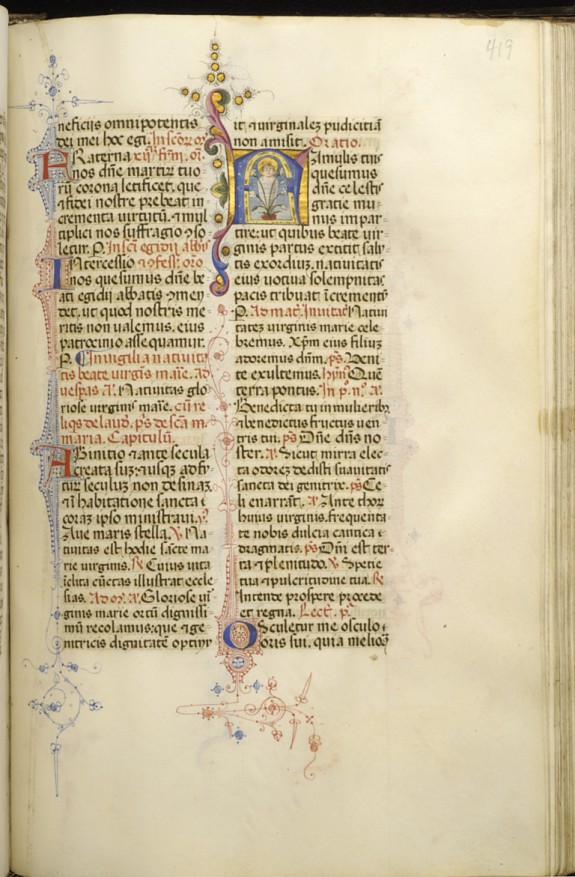 419
neficijs omnipotentis
dei mei hoc egi. In scōr̄
Fraterna
nos dn̄e martir̄ tuo
rū corona letificet, que
⁊ fidei nostre prebeat in
crementa virtutū, ⁊ mul
tiplici nos suffragio ꝯso
letur. P. In sc̄i egidij abbīs
Intercessio
nos quesumus dn̄e be
ati egidij abbatis ꝯmen
det, ut quod nostris me
ritis non valemus, eius
patrocinio assequamur.
P. In vigilia nativita
tis beate virgīs marie. Ad
vesp̄as a. Nativitas glo
riose virginis marie. cū re
liq̄s de laud. p̄s de sc̄a m̄
maria. Capitulū.
Ab initio ⁊ ante secula
creata suȝ: ⁊ usqȝ ad fu
tur̄ seculuȝ non desinaȝ
⁊ ī habitatione sancta
coraȝ ipso ministravi.
Ave maris stella. ℣. Na
tivitas est hodie sācte ma
rie virginis. ℟. Cuius vita
īclita cūctas illustrat eccle
sias. Ad m̄. a. Gloriose vi
ginis marie ortū dignissi
mū recolamus: que ⁊ ge
nitricis dignitatē optinu
it, ⁊ virginaleȝ pudicitiā
non amisit. Oratio.
Famulis tuis
quesumus
dn̄e celestis
gratie mu
nus impar
tire: ut quibus beate vir
ginis partus extitit salu
tis exordiuȝ, nativitatis
eius votiva solempnitas
pacis tribuat īcrementū
P. Ad mat̄. Invitat̄ Nativi
tateȝ virginis marie cele
bremus. Xp̄m eius filiuȝ
adoremus dn̄m. p̄s. Veni
te exultemus. hyn̄ Quē
terra pontus. In p̄. n̄. a.
Benedicta tu in mulieribȝ
⁊ benedictus fructus ven
tris tui. p̄s Dn̄e dn̄s no
ster. a. Sicut mirra elec
ta odoreȝ dedisti suavitatis
sancta dei genitrix. p̄s Ce
li enarrāt. a. Ante thor̄
huius virginis, frequenta
te nobis dulcia cantica
dragmatis. p̄s Dn̄i est ter
ra ⁊ plenitudo. ℣. Specie
tua ⁊ pulcritudine tua. ℟
Intende prospere procede
et regna. Lect. p̄.
Osculetur me osculo
oris sui, quia meliora